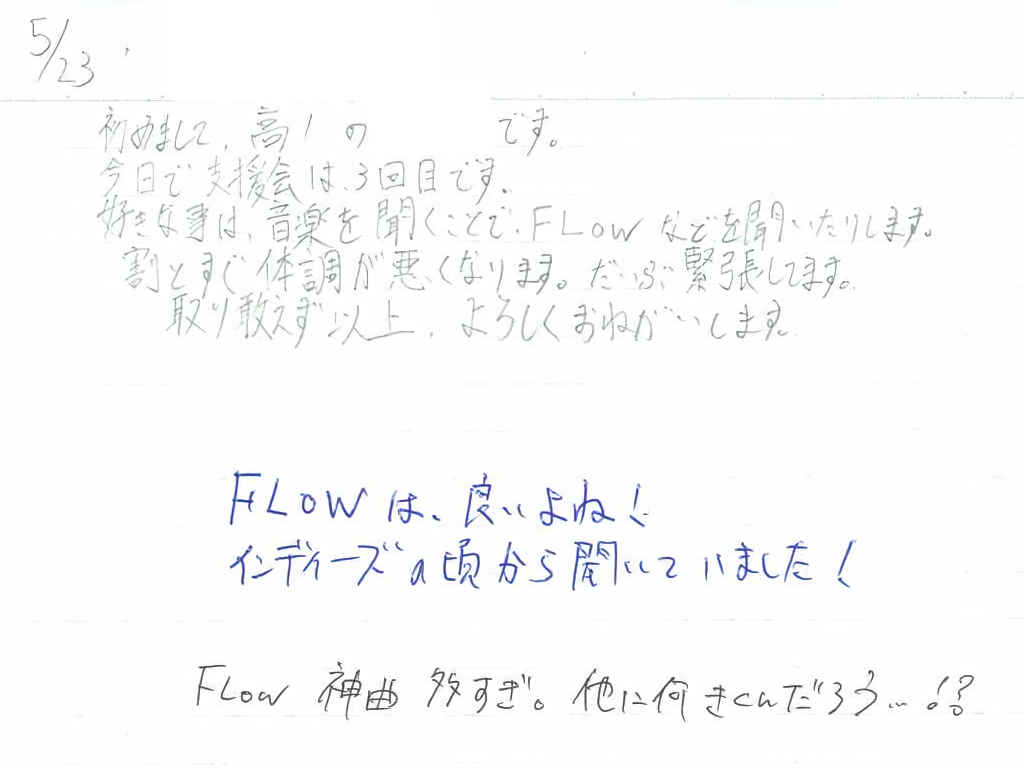 5/23
初めまして、高1の です。
今日で支援会は、3回目です。
好きな事は、音楽を聞くことで、FLOWなどを聞いたりします。
割とすぐ体調が悪くなります。だいぶ緊張してます。
取り敢えず以上、よろしくおねがいします。
FLOWは、良いよね!
インディーズの頃から聞いていました!
FLOW 神曲 多すぎ。他に何きくんだろう…!?